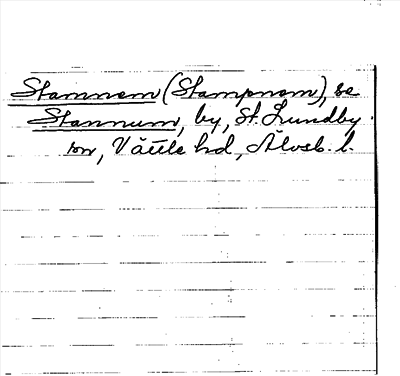 Stamnem (Stampnem), se
Stannum, by, St. Lundby
sn, Vättle hd, Älvsb. l.